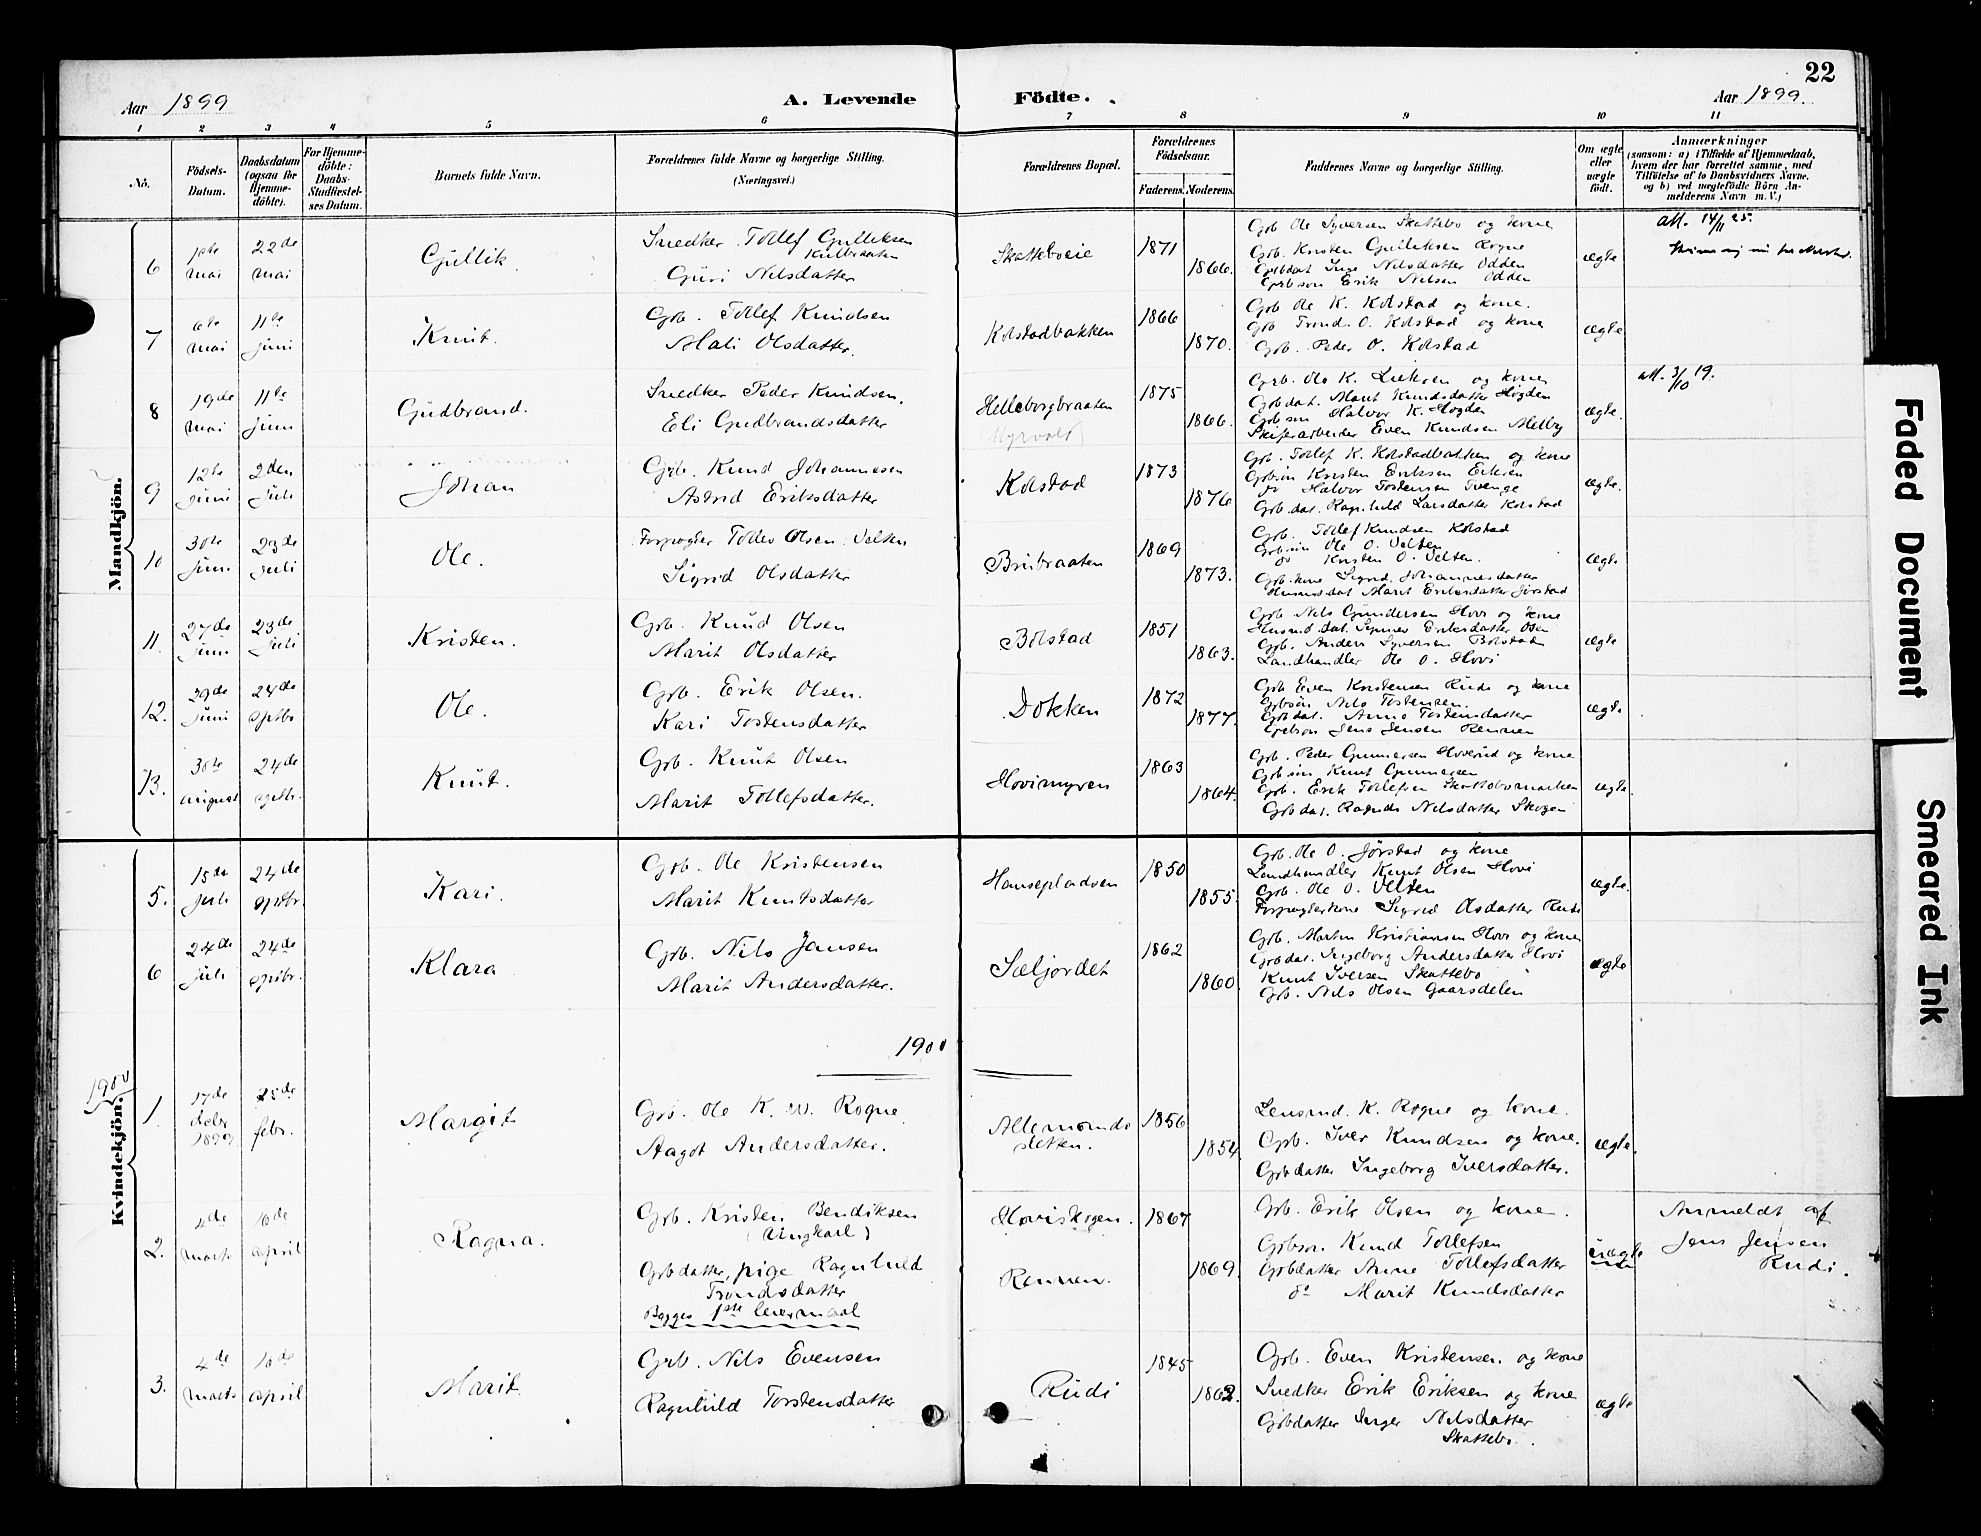 22
Aar 1899
A. Levende Födte.
Aar 1899.
1 2 3 4 5 6 7 8 9 10 11
No.
Födsels-
Datum.
Daabsdatum
(ogsaa for
Hjemme-
döbte).
For Hjemme-
döbte:
Daabs-
Stadfæstel-
ses Datum.
Barnets fulde Navn.
Forældrenes fulde Navne og borgerlige Stilling.
(Næringsvei.)
Forældrenes Bopæl.
Forældrenes
Födselsaar.
Faderens. Moderens.
Faddernes Navne og borgerlige Stilling.
Om ægte
eller
uægte
födt.
Anmærkninger
(saasom: a) i Tilfælde af Hjemmedaab,
hvem der har forrettet samme, med
Tilföielse af to Daabsvidners Navne.
og b) ved uægtefödte Börn An-
melderens Navn m. V.)
Mandkjön.
6
1ste mai
22de mai
Gullik
Snedker Tollef Gulliksen
Kulbraaten
Guri Nilsdatter
Skatteboeie
1871
1866.
Grb Ole Syversen Skattebo og kone
Grb. Kristen Gulliksen Rogne
Grbdat Inge Nilsdatter Odden
Grbson Erik Nilsen Odden
ægte
att. 14/11 25.
7
6te mai
11te juni
Knut.
Grb. Tollef Knudsen
Mali Olsdatter.
Kolstadbakken
1866
1870.
Grb Ole K. Kolstad og kone.
Grb Trond. O. Kolstad og kone
Grb. Peder O. Kolstad
ægte
8
19de mai
11te juni
Gudbrand.
Snedker Peder Knudsen.
Eli Gudbrandsdatter
Helleborgbraaten
(Myrvold)
1875
1866.
Grb. Ole K. og kone
Grbdat. Marit Knudsdatter Høgden
Grbsøn Halvor K. Høgden
Skiferarbeider Even Knudsen Melby
ægte.
att. 3/10 19.
9
12te juni
2den juli
Johan
Grb. Knud Johannesen
Astrid Eriksdatter
Kolstad
1873
1876
Grb. Tollef K. Kolstadbakken og kone
Grbsøn Kristen Eriksen
do Halvor Tostensen Tvenge
Grb.dat. Ragnhild Larsdatter Kolstad
ægte.
10
30te juni
23de juli
Ole.
Forpagter Tolleo Olsen Velten
Sigrid Olsdatter
Brubraaten
1869
1873.
Grb. Tollef Knudsen Kolstad
Grbsøn Ole O. Velten
do Kristen O. Velten.
Grb.kone Sigrid Johannesdatter
Husmdsdat Marit Eriksdatter Jørstad
ægte
11.
27de juni
23de juli
Kristen.
Grb. Knud Olsen
Marit Olsdatter
Bolstad
1851
1863.
Grb. Nils Gundersen Hovi og kone
Husmd.dat. Eriksdatter
Grb. Anders Syversen Bolstad
Landhandler Ole O. Hovi
ægte
12.
29de juni
24de septbr
Ole.
Grb. Erik Olsen.
Kari Tostensdatter
Dokken
1872
1877.
Grb Even Kristensen Rudi og kone
Grbsøn Nils Tostensen.
Grbdat. Anne Tostensdatter
Grbson Jens Jensen Rennen
ægte
13.
30te august
24de septbr.
Knut.
Grb. Knut Olsen
Marit Tollefsdatter.
Hovimyren
1863
1864.
Grb. Peder Gunnersen Hoverud og kone
Grbsøn Knut Gunnersen
Grb. Erik Tollefsen Skattebomarken
Grbdat. Ragndi Nilsdatter Skogen
ægte.
Kvindekjön.
5.
15de juli
24de septbr.
Kari.
Grb. Ole Kristensen
Marit Knutsdatter
Hansepladsen
1850
1855.
Grb. Ole O. Jørstad og kone
Landhandler Knut Olsen Hovi
Grb. Ole O. Velten
Forpagterkone Sigrid Olsdatter
ægte.
6
24de juli
24de septbr.
Klara
Grb. Nils Jansen
Marit Andersdatter.
Sæljordet
1862
1860.
Grb. Martin Kristiansen Hovi og kone
Grbdat. Ingeborg Andersdatter Hovi
Knut Iversen Skattebo
Grb. Nils Olsen Gaarsdelen
ægte
1900
1900
1.
17de debr 1899
25de febr.
Margit
Grb. Ole K. Rogne
Aagot Andersdatter.
Allemands
sletten.
1856
1854.
Lensmd. K. Rogne og kone.
Grb. Iver Knudsen og kone.
Grbdatter Ingeborg Iversdatter.
ægte.
2.
4de marts
16de april
Ragna.
Grb. Kristen Bendiksen
(Ungkarl)
Grbdatter, pige Ragnhild
Trondsdatter
Begges 1ste leiermaal
Hoviskogen.
Rennen.
1867
1869.
Grb. Erik Olsen og kone.
Grbson. Knud Tollefsen
Grbdatter Anne Tollefsdatter
do Marit Knudsdatter
uægte
Anmeldt af
Jens Jensen
Rudi.
3.
4de marts
16de april
Marit
Grb. Nils Evensen
Ragnhild Torstensdatter
Rudi
1845
1862.
Grb. Even Kristensen. og kone
Snedker Erik Eriksen og kone
Grbdatter Inger Nilsdatter
Skattebo.
ægte
Faded Document
Smeared Ink